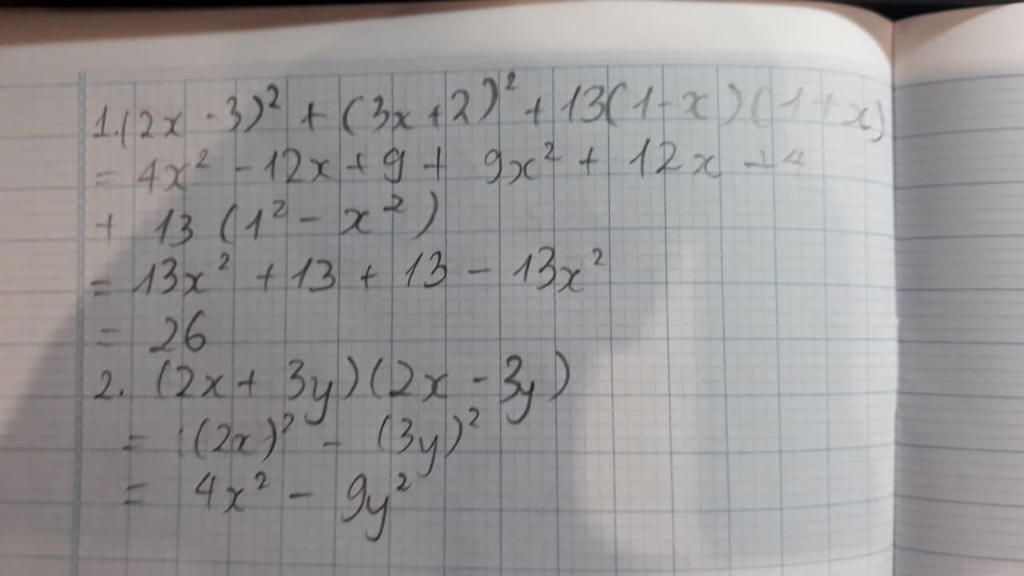 1. (2x - 3)² + (3x + 2)² + 13(1 - x)(1 + x)
= 4x² - 12x + 9 + 9x² + 12x + 4
+ 13 (1² - x²)
= 13x² + 13 + 13 - 13x²
= 26
2. (2x + 3y)(2x - 3y)
= (2x)² - (3y)²
= 4x² - 9y²